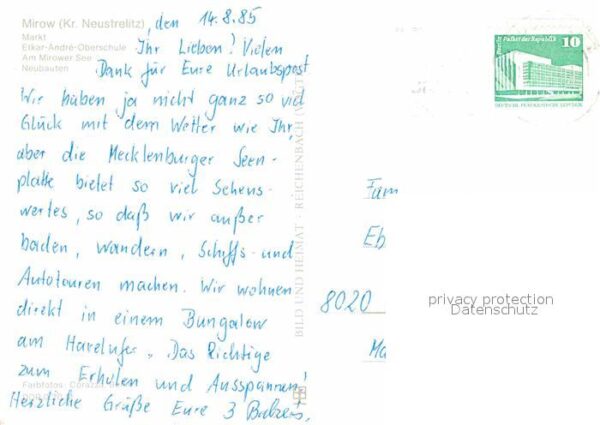 Mirow (Kr. Neustrelitz), den 14.8.85
Markt
Etkar-André-Oberschule
Am Mirower See
Neubauten
Ihr Lieben! Vielen
Dank für Eure Urlaubspost
Wir haben ja nicht ganz so viel
Glück mit dem Wetter wie Ihr,
aber die Mecklenburger Seen-
platte bietet so viel Sehens-
wertes, so daß wir außer
baden, wandern, Schiffs- und
Autotouren machen. Wir wohnen
direkt in einem Bungalow
am Havelufer. Das Richtige
zum Erholen und Ausspannen!
Herzliche Grüße Eure 3
Farbfotos:
BILD UND HEIMAT · REICHENBACH
Berlin, Palast der Republik
10
Fam
Eb
8020
Ma
privacy protection
Datenschutz